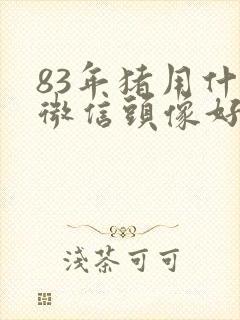 83年猪用什
微信頭像好
淺茶可可